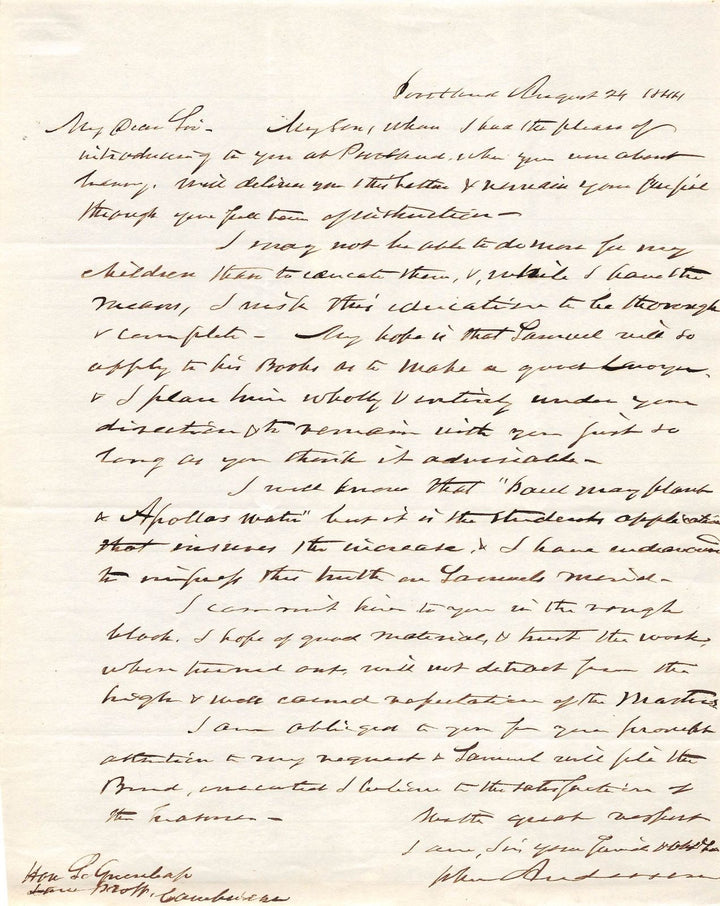 Portland August 24 1844
My Dear Sir - My Son, whom I had the pleasure of
introducing to you at Portland, when you were about
leaving, will deliver you this letter & remain your pupil
through your full term of instruction -
I may not be able to do more for my
children than to educate them, &, while I have the
means, I wish this education to be thorough
& complete - My hope is that Samuel will so
apply to his Books as to make a good Lawyer,
& I place him wholly & entirely under your
direction & to remain with you just so
long as you think it advisable -
I well know that "Paul may plant
& Apollas water" but it is the students application
that insures the increase, & I have endeavored
to impress this truth on Samuels mind -
I commit him to you in the rough
block. I hope of good material, & trust the work,
when turned out, will not detract from the
high & well earned reputation of the Master.
I am obliged to you for your prompt
attention to my request & Samuel will file the
Bond, executed I believe to the satisfaction of
the Treasurer - With great respect
I am, Sir, your friend &
John Anderson
Hon S. Greenleaf
Law Proff. Cambridge